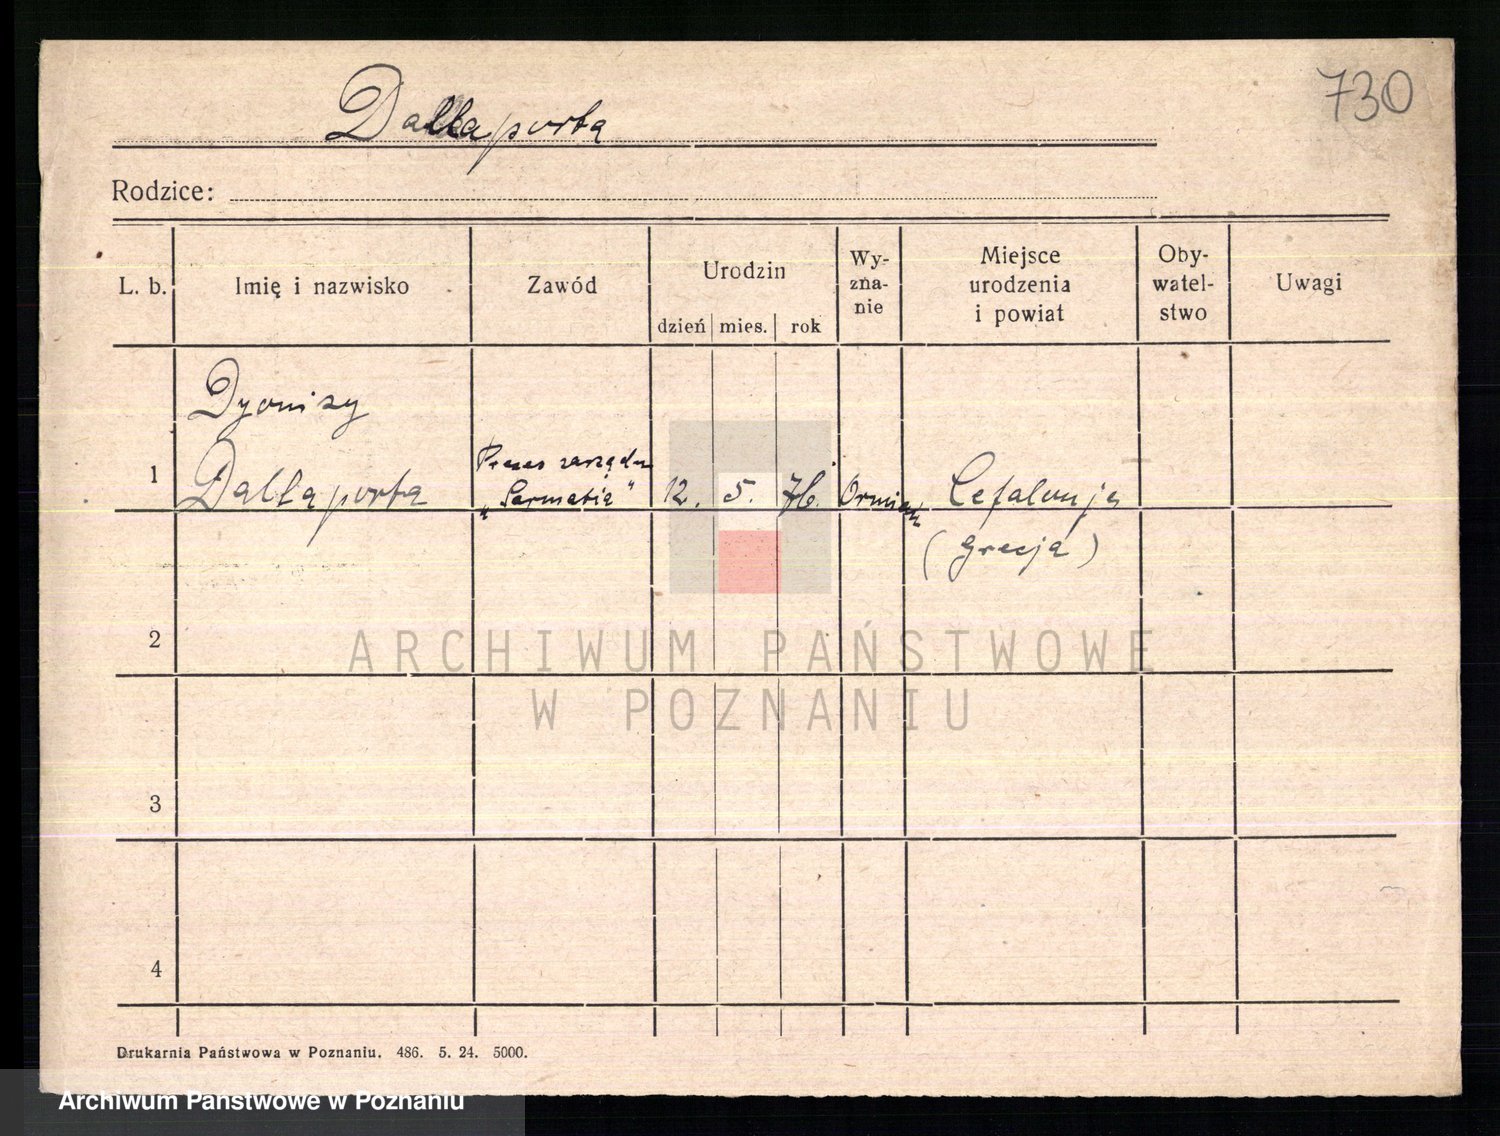 730
Dallaporta
Rodzice:
L. b.
Imię i nazwisko
Zawód
Urodzin
dzień
mies.
rok
Wy-
zna-
nie
Miejsce
urodzenia
i powiat
Oby-
watel-
stwo
Uwagi
1
Dyonizy
Dallaporta
Prezes zarządu
„Sarmatia”
12.
5.
76.
Cefalonja
(Grecja)
2
3
4
ARCHIWUM PAŃSTWOWE
W POZNANIU
Drukarnia Państwowa w Poznaniu. 486. 5. 24. 5000.
Archiwum Państwowe w Poznaniu